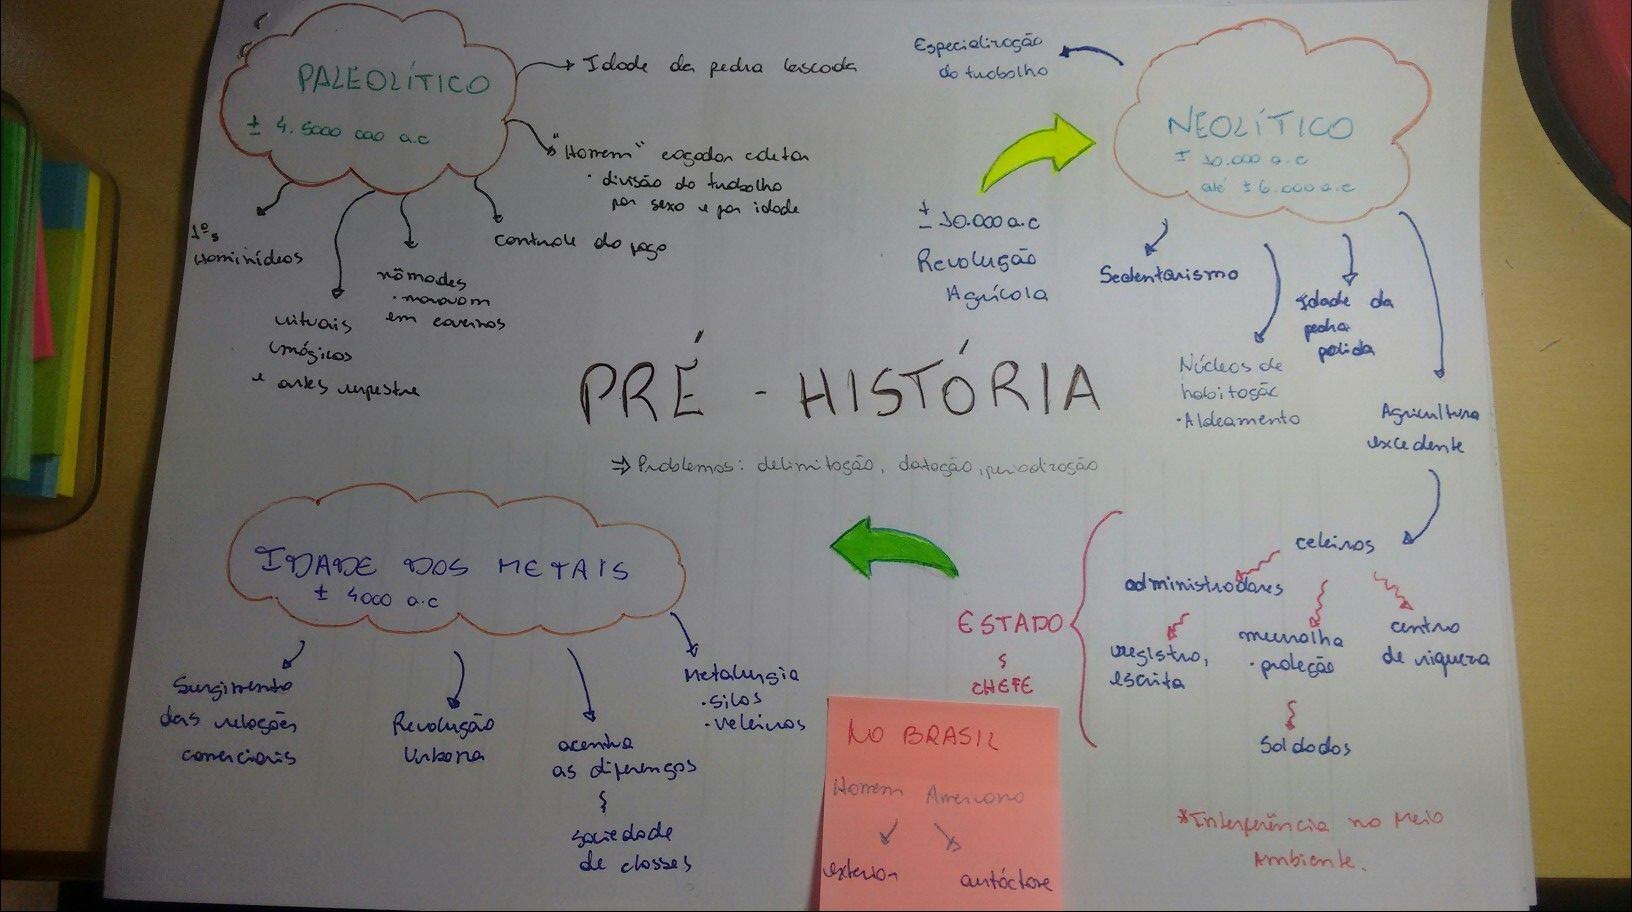 PALEOLÍTICO
± 4.5000 000 a.c
→ Idade da pedra lascada
"Homem" caçador coletor
· divisão do trabalho
por sexo e por idade
1ºs
Hominídeos
rituais
mágicos
e artes rupestre
nômades
· moravam
em cavernas
controle do fogo
Especialização
do trabalho
NEOLÍTICO
± 10.000 a.c
até ± 6.000 a.c
± 10.000 a.c
Revolução
Agrícola
Sedentarismo
Núcleos de
habitação
· Aldeamento
Idade da
pedra
polida
Agricultura
excedente
PRÉ - HISTÓRIA
⇒ Problemas: delimitação, datação, periodização
IDADE DOS METAIS
± 4000 a.c
Surgimento
das relações
comerciais
Revolução
Urbana
acentua
as diferenças
sociedade
de classes
Metalurgia
· silos
· veleiros
ESTADO
CHEFE
celeiros
administradores
registro,
escrita
muralha
· proteção
Soldados
centro
de riqueza
NO BRASIL
Homem Americano
exterior
autóctone
*Interferência no Meio
Ambiente.